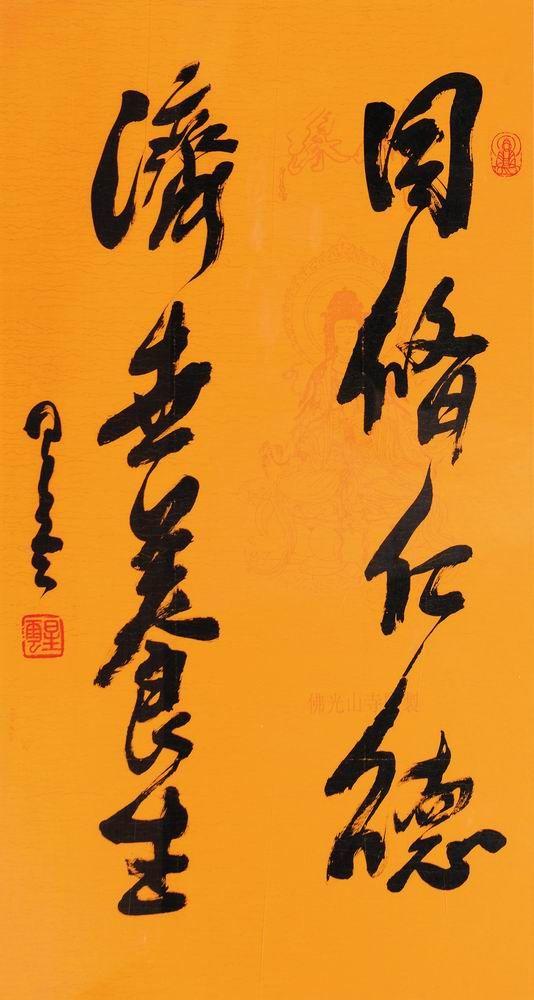 同修仁德
濟世養生
星雲
星雲
佛光山寺製
緣